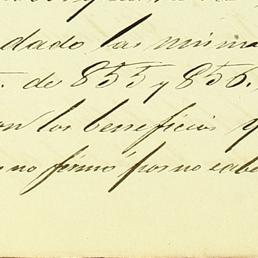 dado las misma
de 855 y 856.
on los beneficios y
no firmó por no sabe